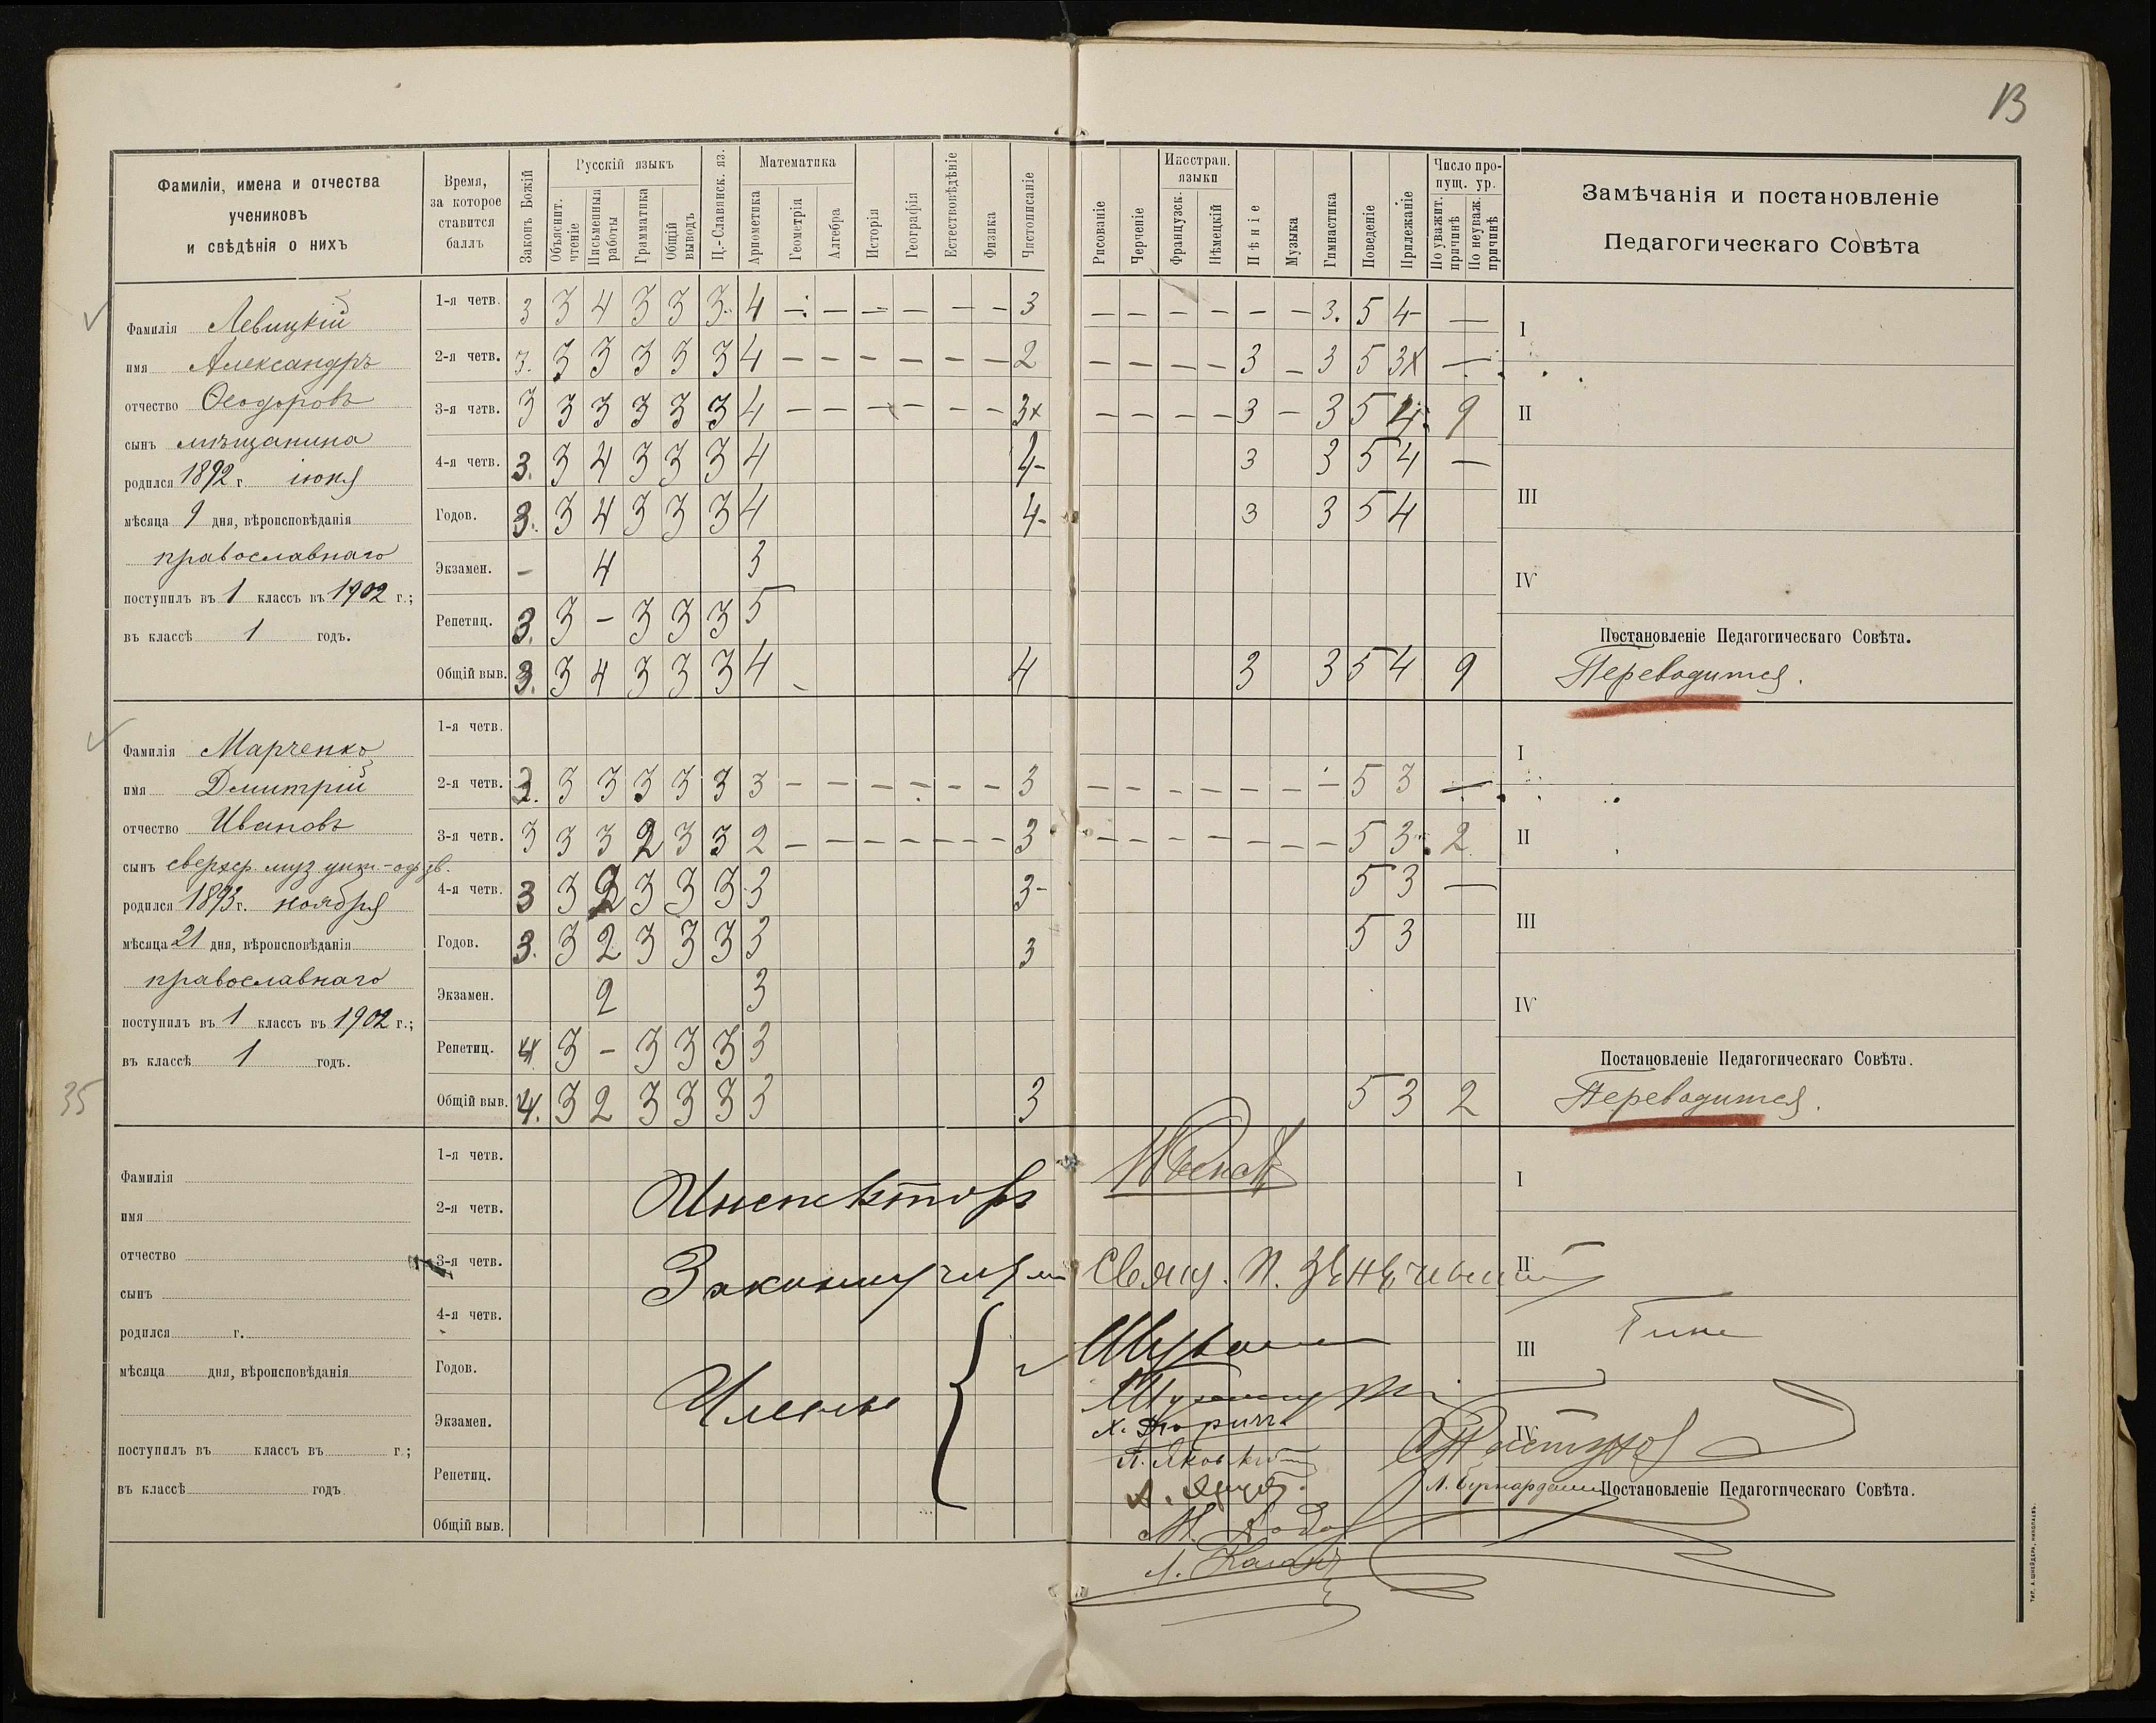 13
Фамиліи, имена и отчества
учениковъ
и свѣдѣнія о нихъ
Время,
за которое
ставится
баллъ
Законъ Божій
Русскій языкъ
Объяснит. чтеніе
Письменныя работы
Грамматика
Общій выводъ
Ц.-Славянск. яз.
Математика
Ариѳметика
Геометрія
Алгебра
Исторія
Географія
Естествовѣдѣніе
Физика
Чистописаніе
Рисованіе
Черченіе
Иностран. языки
Французск.
Нѣмецкій
Пѣніе
Музыка
Гимнастика
Поведеніе
Прилежаніе
Число пропущ. ур.
По уважит. причинѣ
По неуваж. причинѣ
Замѣчанія и постановленіе
Педагогическаго Совѣта
Фамилія Левицкій
имя Александръ
отчество Ѳеодоровъ
сынъ мѣщанина
родился 1892 г. іюня
мѣсяца 9 дня, вѣроисповѣданія
православнаго
поступилъ въ 1 классъ въ 1902 г.;
въ классѣ 1 годъ.
1-я четв. 3 3 4 3 3 3. 4 — — — — — 3 — — — — — — 3. 5 4- —
2-я четв. 3. 3 3 3 3 3 4 — — — — — — 2 — — — — 3 — 3 5 3x —
3-я четв. 3 3 3 3 3 3 4 — — — — — — 3x — — — — 3 — 3 5 4. 9
4-я четв. 3. 3 4 3 3 3 4 4- 3 3 5 4 —
Годов. 3. 3 4 3 3 3 4 4- 3 3 5 4
Экзамен. — 4 3
Репетиц. 3. 3 — 3 3 3 5
Общій выв. 3. 3 4 3 3 3 4 4 3 3 5 4 9
I
II
III
IV
Постановленіе Педагогическаго Совѣта.
Переводится.
Фамилія Марченко
имя Дмитрій
отчество Ивановъ
сынъ сверхср. муз. унт.-оф.
родился 1893 г. ноября
мѣсяца 21 дня, вѣроисповѣданія
православнаго
поступилъ въ 1 классъ въ 1902 г.;
въ классѣ 1 годъ.
35
1-я четв.
2-я четв. 3 3 3 3 3 3 — — — — — — 3 — — — — — — — 5 3 —
3-я четв. 3 3 3 2 3 3 2 — — — — — — 3 — — — — — — — 5 3 2
4-я четв. 3 3 3 3 3 3 3- 5 3 —
Годов. 3. 3 2 3 3 3 3 3 5 3
Экзамен. 2 3
Репетиц. 4 3 — 3 3 3 3
Общій выв. 4. 3 2 3 3 3 3 3 5 3 2
I
II
III
IV
Постановленіе Педагогическаго Совѣта.
Переводится.
Фамилія
имя
отчество
сынъ
родился г.
мѣсяца дня, вѣроисповѣданія
поступилъ въ классъ въ г.;
въ классѣ годъ
1-я четв.
2-я четв.
3-я четв.
4-я четв.
Годов.
Экзамен.
Репетиц.
Общій выв.
Инспекторъ
Законоучитель Свящ. П.
Члены
I
II
III
IV
Постановленіе Педагогическаго Совѣта.